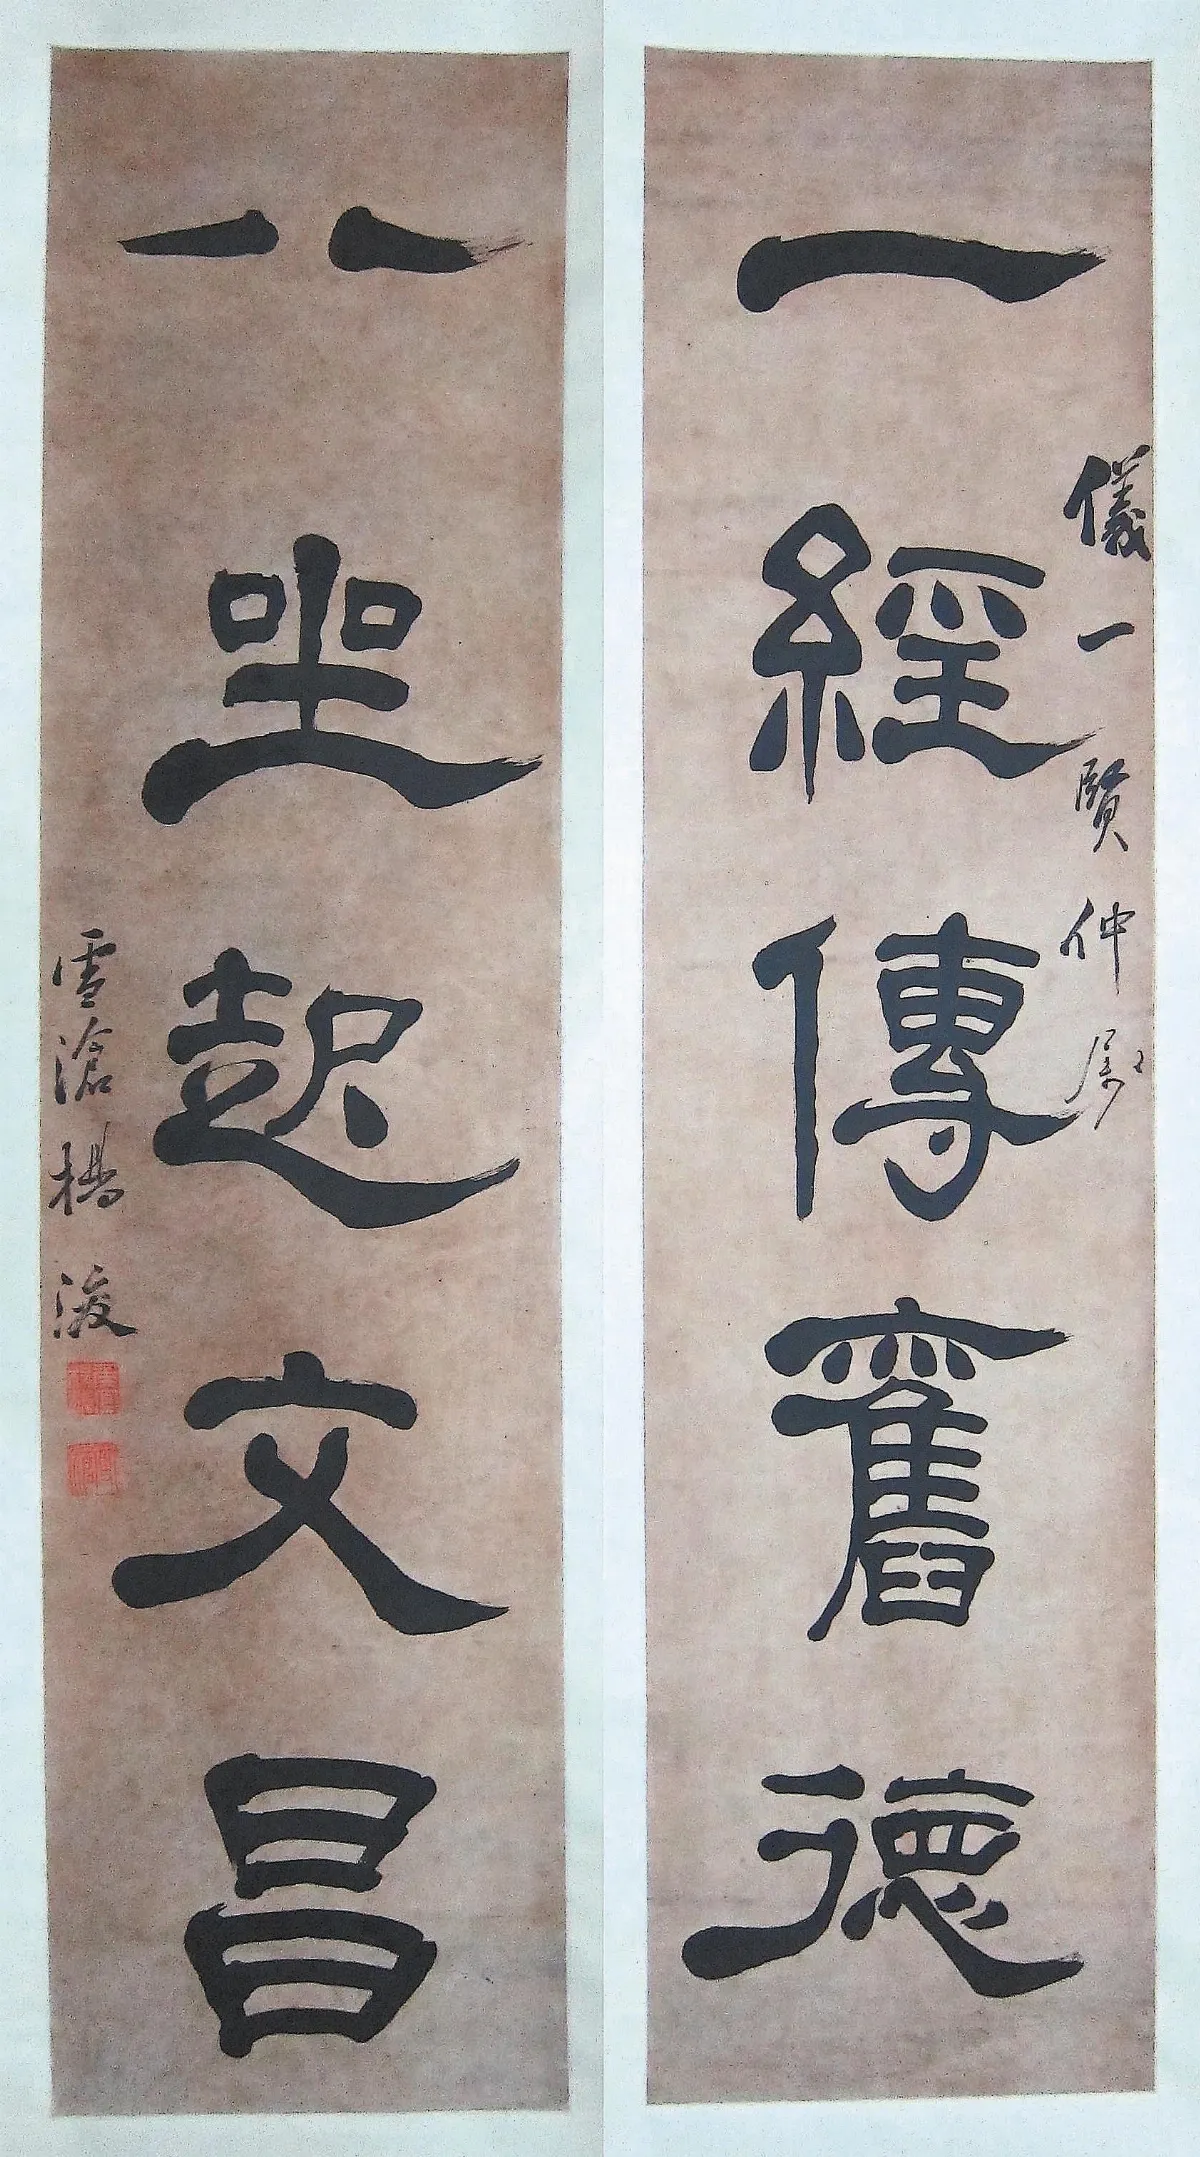 儀一賢仲属
一經傳舊德
八坐起文昌
雪滄楊浚